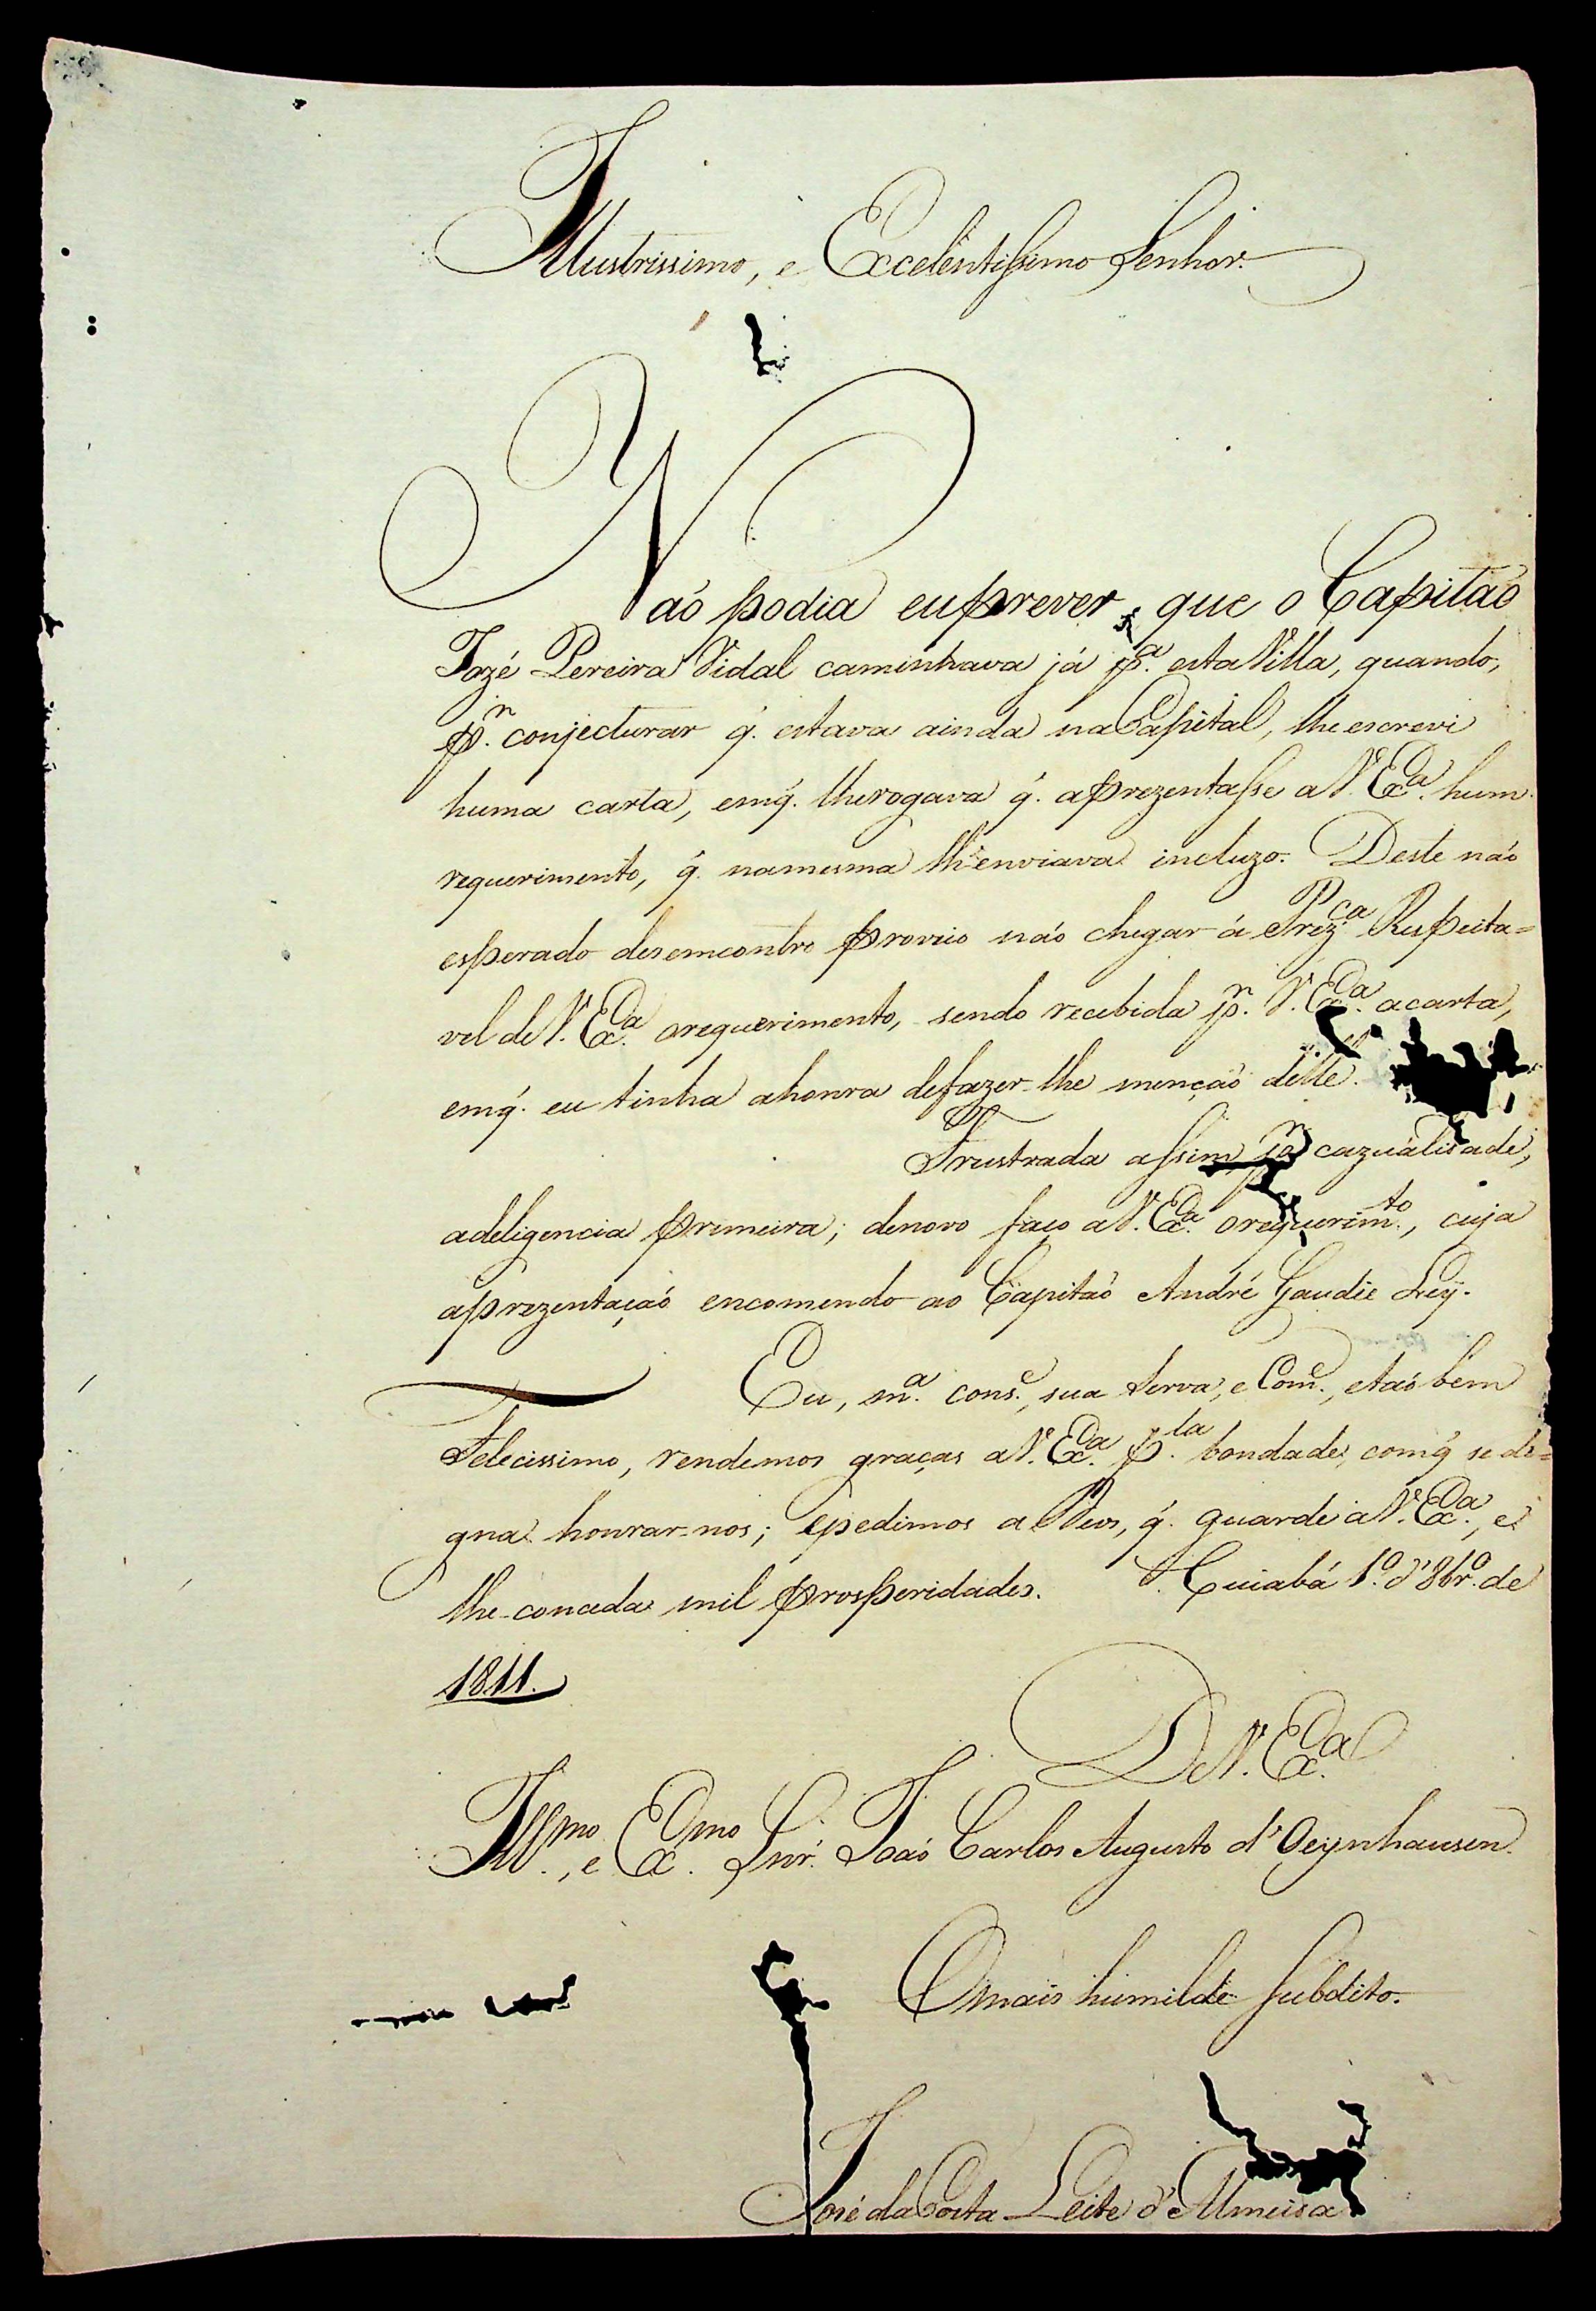 Illustrissimo, e Excelentissimo Senhor.
Naõ podia eu prever, que o Capitaõ
Jozé Pereira Vidal caminhava já p.ª esta Villa, quando,
p.r conjecturar q̃. estava ainda na Capital, lhe escrevi
huma carta, em q̃. lhe rogava q̃. aprezentasse a V. Ex.ª hum
requerimento, q̃. na mesma lh'enviava incluzo. Deste naõ
esperado desemcontro proveio naõ chegar á Prez.ca Respeita=
vel de V. Ex.ª o requerimento, sendo recebida p.r V. Ex.ª a carta,
em q̃. eu tinha a honra de fazer-lhe mençaõ delle.
Frustrada assim p.r cazualidade,
a deligencia primeira; de novo faço a V. Ex.ª o requerim.to, cuja
aprezentaçaõ encomendo ao Capitaõ André Gaudie Ley.
Eu, m.ª cons.e, sua serva, e Com.e, e taõ bem
Felecissimo, rendemos graças a V. Ex.ª p.la bondade, com q̃ se di=
gna honrar-nos; e pedimos a Deos, q̃. guarde a V. Ex.ª, e
lhe conceda mil prosperidades. Cuiabá 1.º d'8br.º de
1811.
De V. Ex.ª
Ill.mo, e Ex.mo Snr̃. Joaõ Carlos Augusto d'Oeynhausen
O mais humilde subdito.
José da Costa Leite d'Almeida